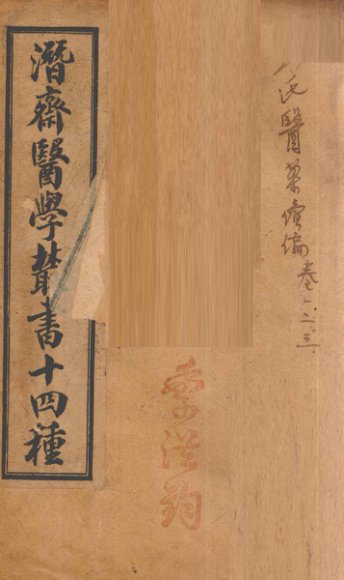 氏醫案續編卷一、二、三
潛齋醫學叢書十四種